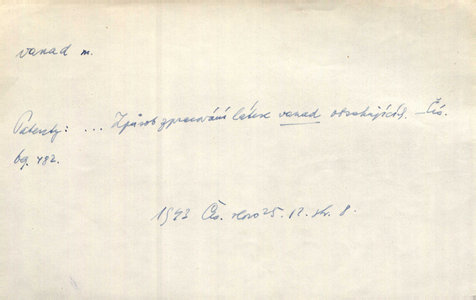 vanad m.
Patenty: ... Způsob zpracování látek vanad obsahujících. — Čís.
bg. 482.
1943 Čes. slovo 25. 12. str. 8.